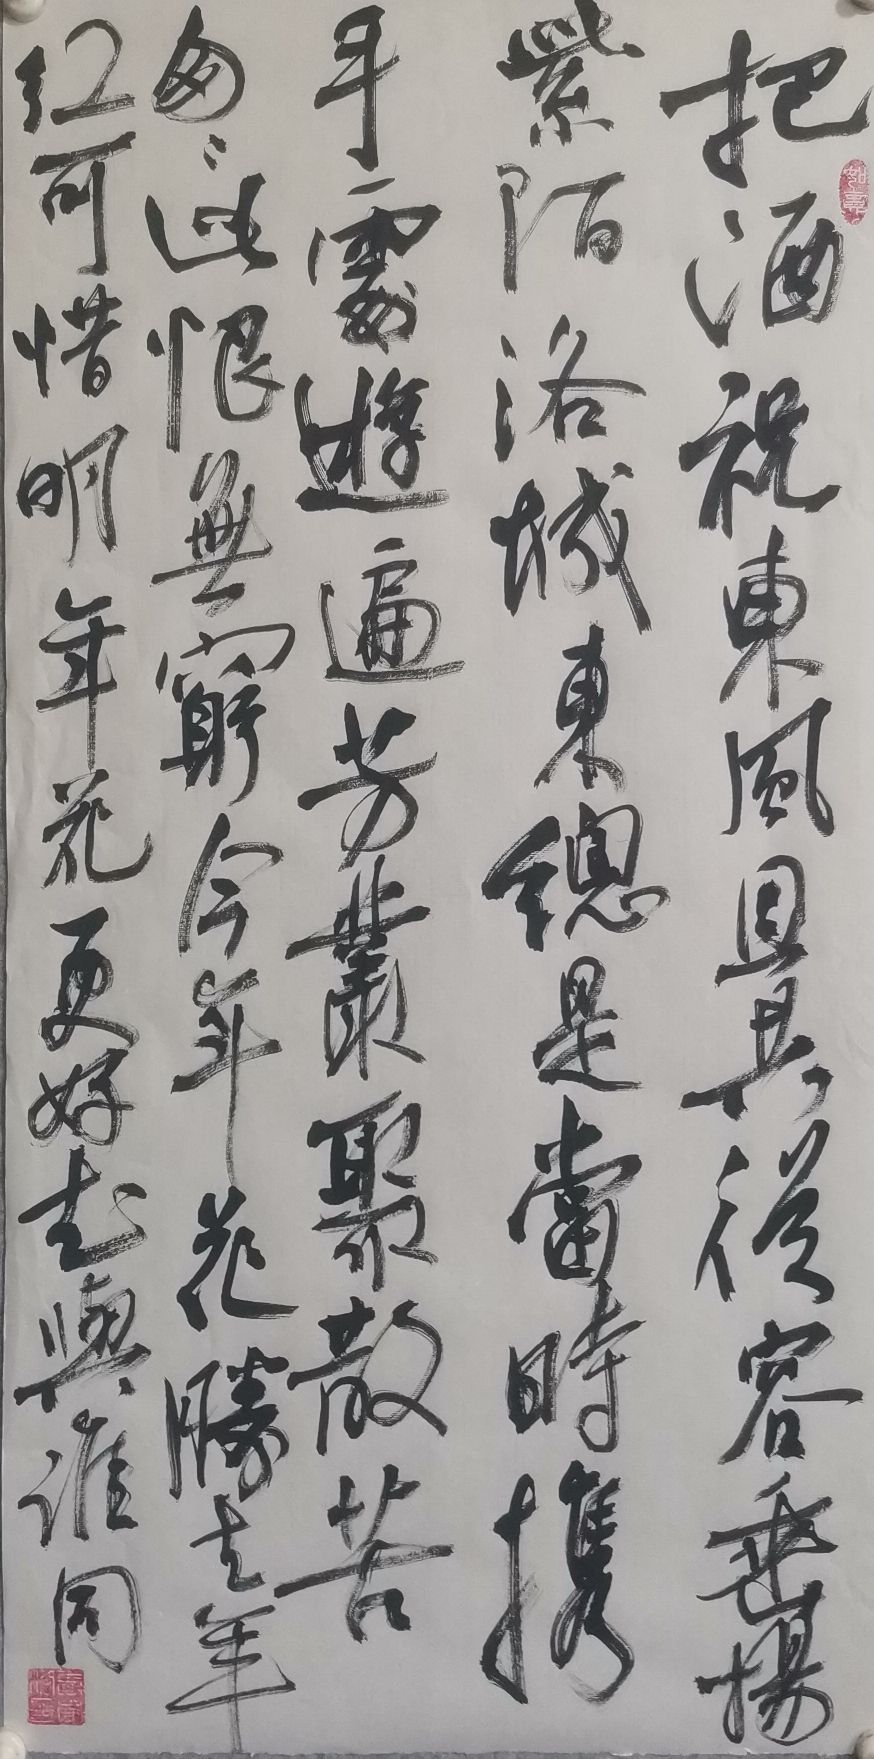 把酒祝東風且共從容垂楊
紫陌洛城東總是當時携
手處遊遍芳叢聚散苦
匆〻此恨無窮今年花勝去年
紅可惜明年花更好知與誰同